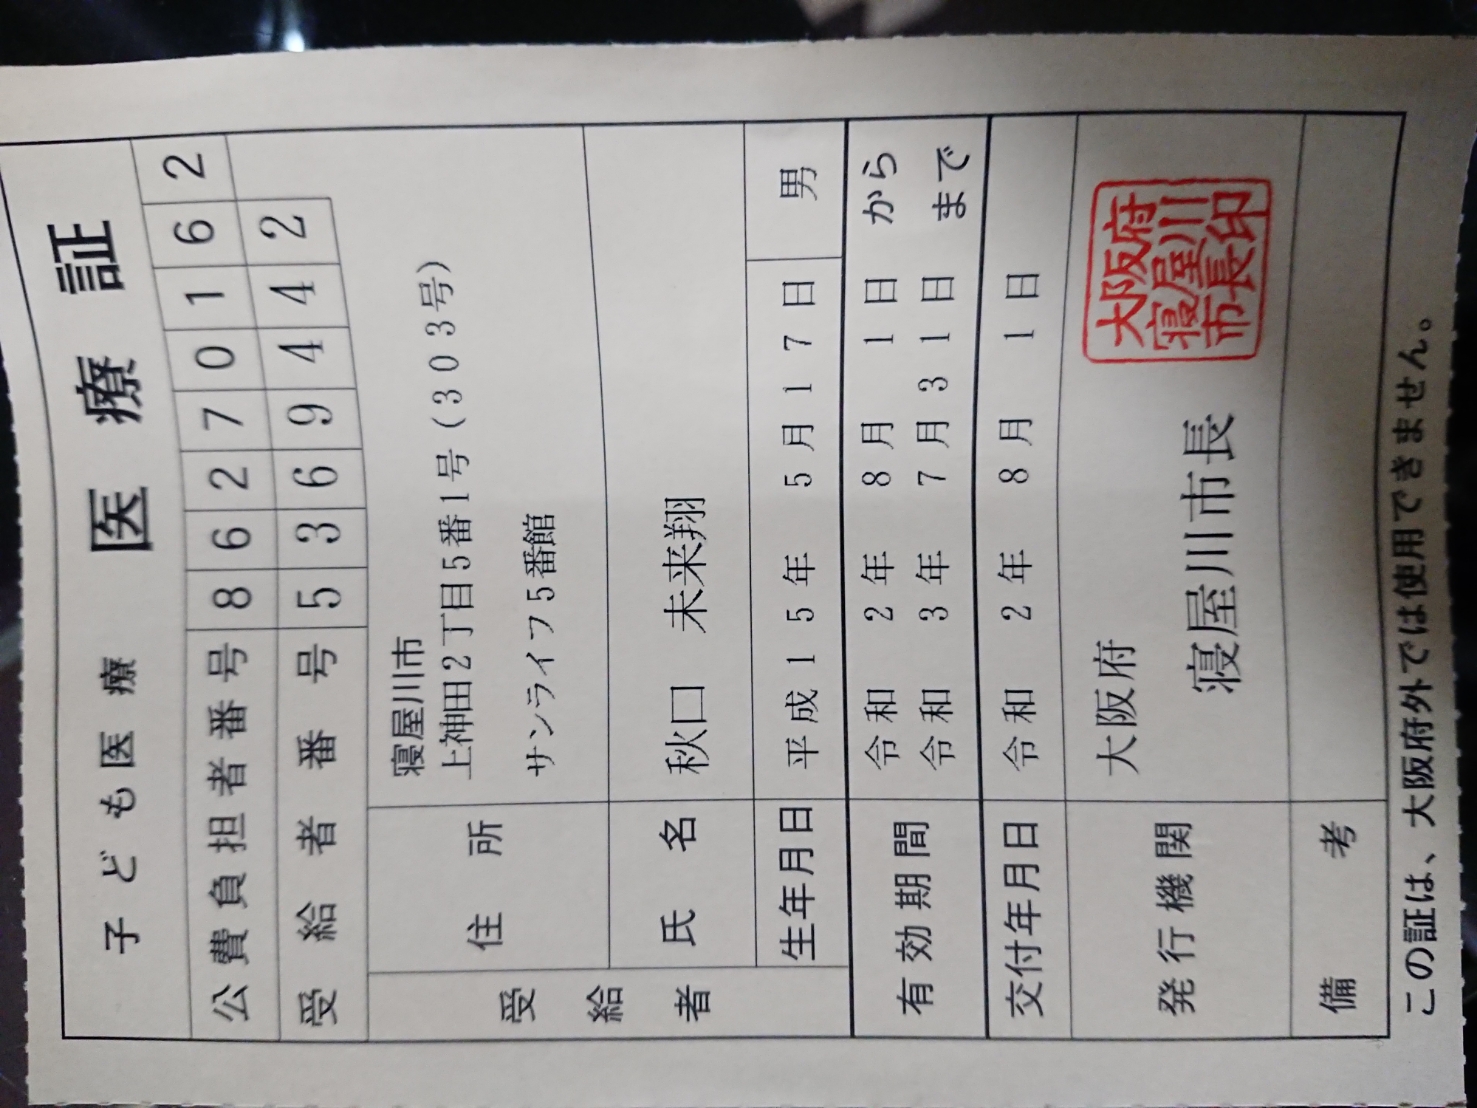 子ども医療 医療証
公費負担者番号 86270162
受給者番号 5369442
受給者
住所 寝屋川市
上神田2丁目5番1号(303号)
サンライフ5番館
氏名 秋口 未来翔
生年月日 平成15年 5月17日 男
有効期間 令和 2年 8月 1日 から
令和 3年 7月31日 まで
交付年月日 令和 2年 8月 1日
発行機関 大阪府
寝屋川市長
大阪府
寝屋川
市長印
備考
この証は、大阪府外では使用できません。